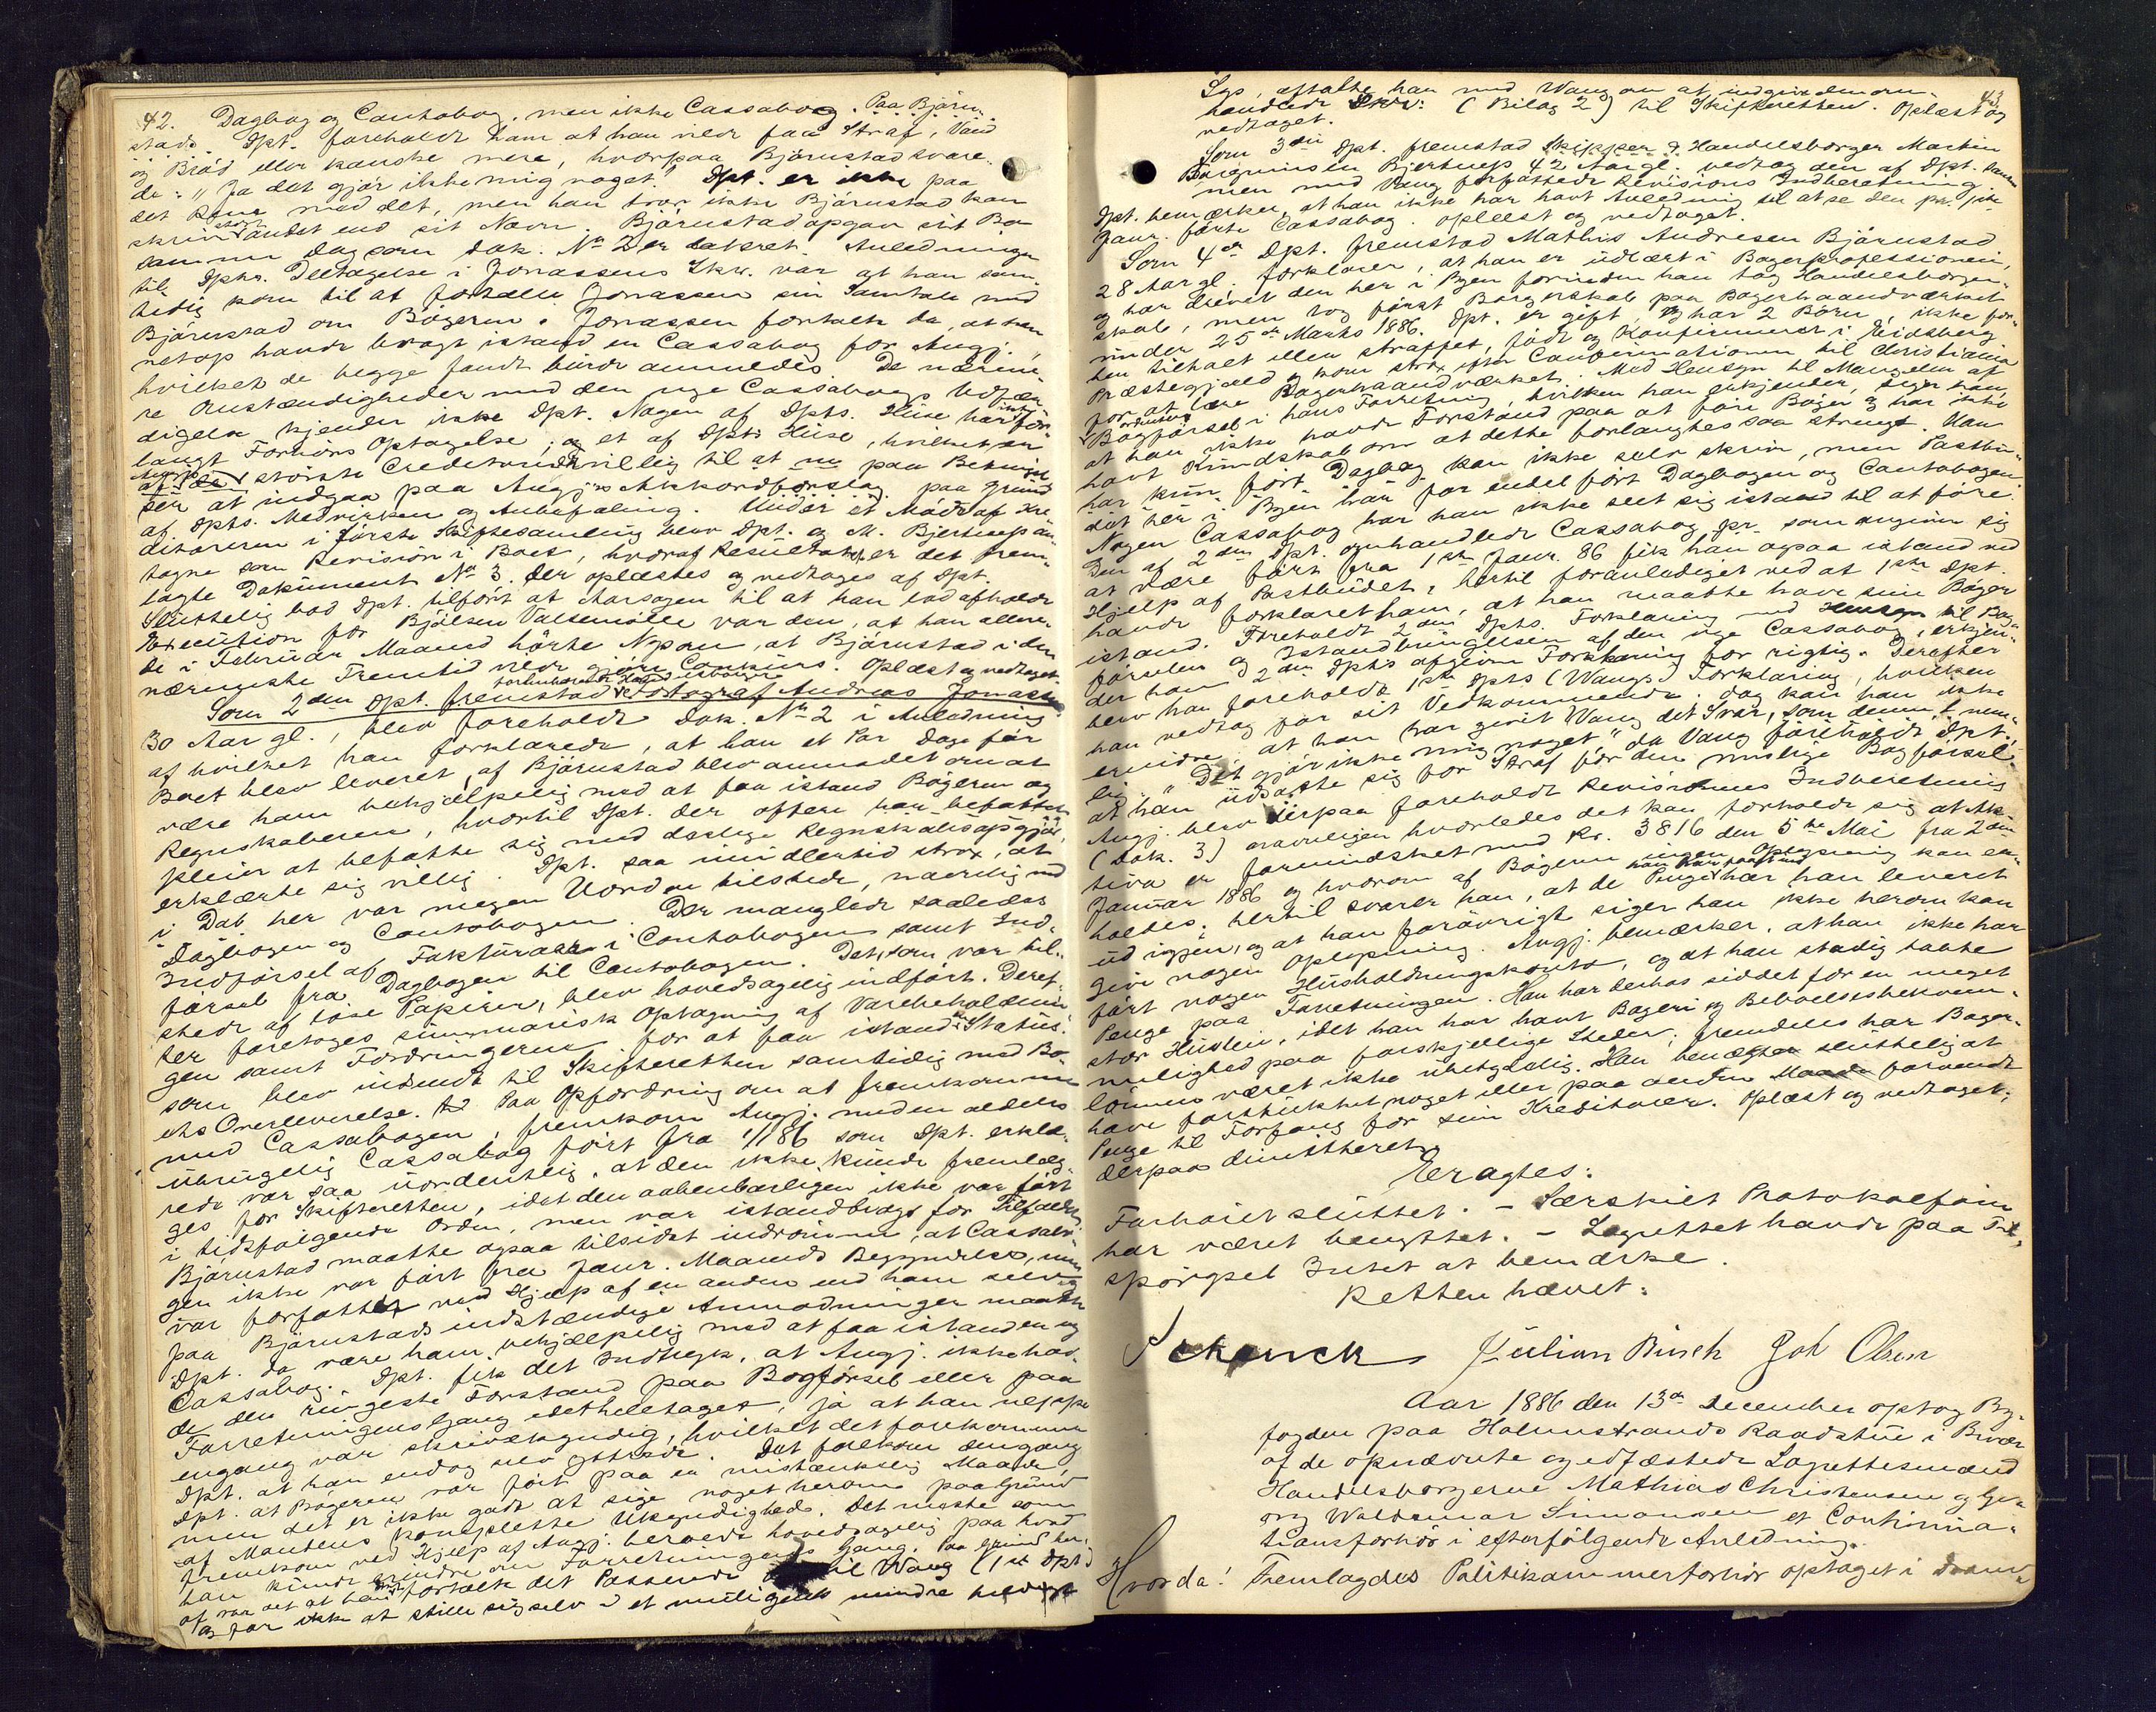 42. Dagbog og Contobog, men ikke Cassabog. Paa Bjørn-
stad. Dpt. foreholdt ham at han vilde faa Straf, Vand
og Brød eller kanske mere, hvorpaa Bjørnstad svare-
de: "Ja det gjør ikke mig noget." Dpt. er ikke paa
det rene med det, men han tror ikke Bjørnstad kan
skrive stort andet end sit Navn. Bjørnstad opgav sit Bo
samme Dag som Dok. No 2 er dateret. Anledningen
til Dpts. Deeltagelse i Jonassens Skr. var at han sam-
tidig kom til at fortælle Jonassen sin Samtale med
Bjørnstad om Bøgerne. Jonassen fortalte da, at han
netop havde bragt istand en Cassabog for Angj.,
hvilket de begge fandt burde anmeldes. De nærme-
re Omstændigheder med den nye Cassabogs Udfær-
digelse kjender ikke Dpt. Nogen af Dpts. Huse har ikke for-
langt Forhørs Optagelse, og et af Dpts Huse, hvilket er
Angj's største Creditor er villig til at nu paa Betingel-
ser at indgaa paa Angj's Akkordforslag paa Grund
af Dpts. Medvirken og Anbefaling. Under et Møde af Kre-
ditorerne i første Skiftesamling blev Dpt. og M. Bjertnes an-
tagne som Revisorer i Boet, hvoraf Resultatet er det frem-
lagte Dokument No 3. der oplæstes og vedtoges af Dpt.
Sluttelig bad Dpt. tilført at Aarsagen til at han lod afholde
Execution for Bjølsen Valsemølle var den, at han allere-
de i Februar Maaned hørte Nys om, at Bjørnstad i den
nærmeste Fremtid vilde gjøre Concurs. Oplæst og vedtaget.
Som 2den Dpt. fremstod forhenværende Handelsborger Fotograf Andreas Jonassen
30 Aar gl., blev foreholdt Dok. No 2 i Anledning
af hvilket han forklarede, at han et Par Dage før
Boet blev leveret, af Bjørnstad blev anmodet om at
være ham behjælpelig med at faa istand Bøgerne og
Regnskaberne, hvortil Dpt. der oftere har befattet
pleier at befatte sig med deslige Regnskabsopgjør,
erklærte sig villig. Dpt. saa imidlertid strax, at
der her var megen Uorden tilstede, navnlig ved
Dagbogen og Contobogen. Der manglede saaledes
Indførsel af Fakturaer i Contobogen samt Ind-
førsel fra Dagbogen til Contobogen. Det, som var til-
stede af løse Papirer, blev hovedsagelig indført. Deref-
ter foretoges summarisk Optagning af Varebeholdnin-
gen samt Fordringerne for at faa istand Status.
som blev indsendt til Skifteretten samtidig med Bo-
ets Overleverelse. Paa Opfordring om at fremkomme
med Cassabogen, fremkom Angj. med en aldeles
ubrugelig Cassabog ført fra 1/1 86 som Dpt. erklæ-
rede var saa uordentlig, at den ikke kunde fremlæg-
ges for Skifteretten, idet den aabenbarligen ikke var ført
i tidsfølgende Orden, men var istandbragt for Tilfældet.
Bjørnstad maatte ogsaa tilsidst indrømme, at Cassabo-
gen ikke var ført fra Janr. Maaneds Begyndelse, men
var forfattet ved Hjælp af en anden end ham selv og
paa Bjørnstads indstændige Anmodninger maatte
Dpt. da være ham behjælpelig med at faa istand en ny
Cassabog. Dpt. fik det Indtryk, at Angj. ikke hav-
de den ringeste Forstand paa Bogførsel eller paa
Forretningens Gang idetheletaget, ja at han neppe
engang var skrivekyndig, hvilket det forekommer
Dpt. at han endog selv yttrede. Det forekom dengang
Dpt. at Bøgerne var ført paa en mistænkelig Maade,
men det er ikke godt at sige noget herom paa Grund
af Mandens komplette Ukyndighed. Det meste som
fremkom ved Hjælp af Angj. beroede hovedsagelig paa hvad
han kunde erindre om Forretningens Gang. Paa Grund her-
af var det at han fortalte det Passerede til Wang (1ste Dpt.)
og for ikke at stille sig selv i et muligens mindre heldigt
43
Lys, aftalte han med Wang om at indgive den om-
handlede Skr. (Bilag 2) til Skifteretten. Oplæst og
vedtaget.
Som 3die Dpt. fremstod Skipper & Handelsborger Martin
Bjertnes 42 Aar gl. vedtog den af Dpt. sam-
men med Wang forfattede Revisions Indberetning.
Dpt. bemærker, at han ikke har havt Anledning til at se den pr. 1ste
Janr. førte Cassabog. Oplæst og vedtaget.
Som 4de Dpt. fremstod Mathis Andresen Bjørnstad
28 Aar gl. forklarer, at han er udlært i Bagerprofessionen,
og har drevet den her i Byen forinden han tog Handelsborger-
skab, men tog først Borgerskab paa Bagerhaandværket
under 25de Marts 1886. Dpt. er gift, og har 2 Børn, ikke før-
hen tiltalt eller straffet, født og Konfirmeret i Eidsberg
Præstegjæld og kom strax efter Confirmationen til Christiania
for at lære Bagerhaandværket. Med Hensyn til Mangelen af
ordentlig Bogførsel i hans Forretning, hvilken han erkjender, siger han,
at han ikke havde Forstand paa at føre Bøger og har ikke
havt Kundskab om at dette forlangtes saa strengt. Han
har kun ført Dagbog kan ikke selv skrive, men Postbu-
det her i Byen har for endel ført Dagbogen og Contobogen.
Nogen Cassabog har han ikke seet sig istand til at føre.
Den af 2den Dpt. omhandlede Cassabog pr. som angiver sig
at være ført fra 1ste Janr. 86 fik han ogsaa istand ved
Hjelp af Postbudet, hertil foranlediget ved at 1ste Dpt.
havde forklaret ham, at han maatte have sine Bøger
istand. Foreholdt 2den Dpts. Forklaring med Hensyn til Bog-
førselen og Istandbringelsen af den nye Cassabog, erkjen-
der han 2den Dpts afgivne Forklaring for rigtig. Derefter
blev han foreholdt 1ste Dpts (Wangs) Forklaring, hvilken
han vedtog for sit Vedkommende. Dog kan han ikke
erindre, at han har givet Wang det Svar, som denne nem-
lig "Det gjør ikke mig noget" da Wang foreholdt Dpt.
at han udsatte sig for Straf for den muslige Bogførsel.
Angj. blev derpaa foreholdt Revisionens Indberetning
(Dok. 3) navnligen hvorledes det kan forholde sig at Ak-
tiva er formindsket med Kr. 3816 den 5te Mai fra 2den
Januar 1886 og hvorom af Bøgerne ingen Oplysning kan er-
holdes; hertil svarer han, at de Penge han har faaet ind har han leveret
ud igjen, og at han forøvrigt siger han ikke herom kan
give nogen Oplysning. Angj. bemærker, at han ikke har
ført nogen Husholdningskonto, og at han stadig tabte
Penge paa Forretningen. Han har derhos siddet for en meget
stor Husleie, idet han har havt Bageri og Beboelsesbekvem-
melighed paa forskjellige Steder; fremdeles har Bager-
lønnen været ikke ubetydelig. Han benægter sluttelig at
have forstukket noget eller paa anden Maade forvendt
Penge til Forfang for sine Kreditorer. Oplæst og vedtaget;
derpaa dimitteret.
Eragtes:
Forhøret sluttet. - Særskilt Protokolføre
har været benyttet. - Lagrettet havde paa Til-
spørgsel Intet at bemærke.
Retten hævet:
Schenck Julius Busch Joh Olsen
Aar 1886 den 13de December optog By-
fogden paa Holmestrands Raadstue i Bivær
af de opnævnte og edfæstede Lagrettesmænd
Handelsborgerne Mathias Christensen og Ge-
org Waldemar Simonsen et Continua-
tionsforhør i efterfølgende Anledning.
Hvorda: Fremlagdes Politikammerforhør optaget i